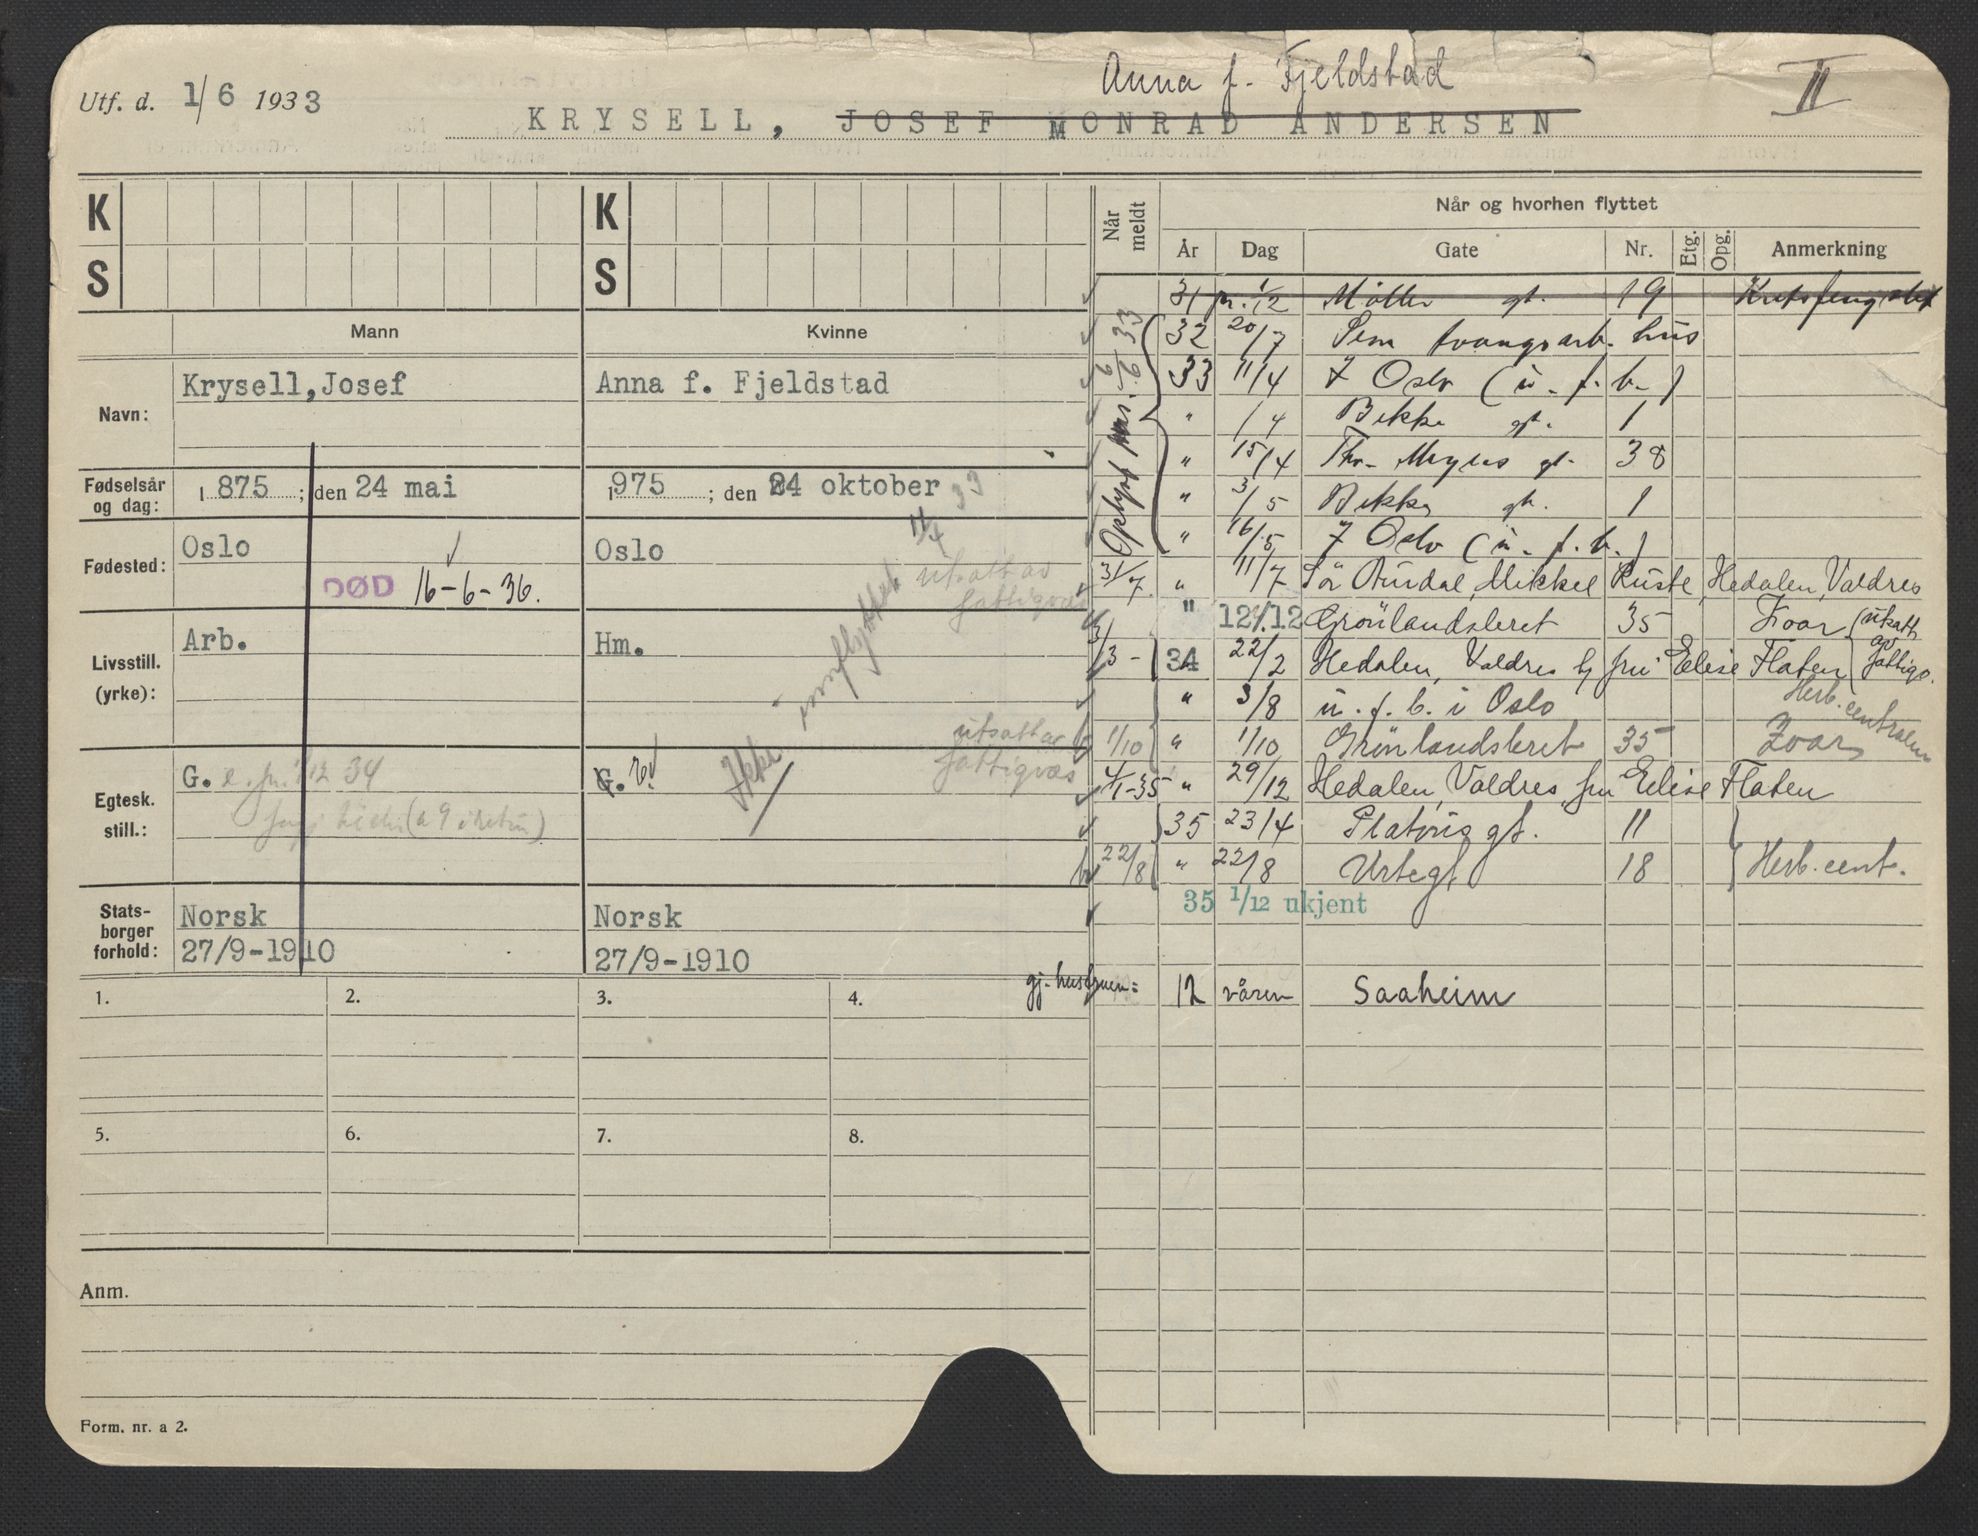 Anna f. Fjeldstad
II
Utf. d. 1/6 1933
KRYSELL, JOSEF MONRAD ANDERSEN
K
S
K
S
Mann
Kvinne
Navn:
Krysell, Josef
Anna f. Fjeldstad
Fødselsår og dag:
1875; den 24 mai
1975; den 24 oktober
Fødested:
Oslo
DØD 16-6-36.
Oslo
utsatt av
fattigvæs
Ikke innflyttet 11/4 33
Livsstill. (yrke):
Arb.
Hm.
Egtesk. still.:
G. 1/12 34
G.
utsatt av
fattigvæs
Stats-borger forhold:
Norsk
27/9-1910
Norsk
27/9-1910
1. 2. 3. 4.
5. 6. 7. 8.
Anm.
Form. nr. a 2.
Når meldt
Når og hvorhen flyttet
År Dag Gate Nr. Etg. Opg. Anmerkning
31 pr. 1/12 Møller gt. 19
Oplyst 6/6 33
32 20/7 Sem tvangsarb. hus
33 11/4 I Oslo (u. f. b.)
" /4 Bekke gt. 1
" 15/4 Thv. Meyers gt. 38
" 3/5 Bekke gt. 1
" 16/5 I Oslo (u. f. b.)
31/7 " 11/7 Sør Aurdal, Mikkel Ruste, Hedalen, Valdres
" 12/12 Grönlandsleret 35 Zoar (utkatt av fattigv.
3/3 - 34 22/2 Hedalen, Valdres hj fru Elise Flaten
" 3/8 u. f. b. i Oslo Herb. centralen
1/10 " 1/10 Grønlandsleret 35 Zoar
4/1-35 " 29/12 Hedalen, Valdres, fru Elise Flaten
35 23/4 Platous gt. 11
22/8 " 22/8 Urtegt 18 Herb. cent.
35 1/12 ukjent
gj. hustruen: 12 våren Saaheim